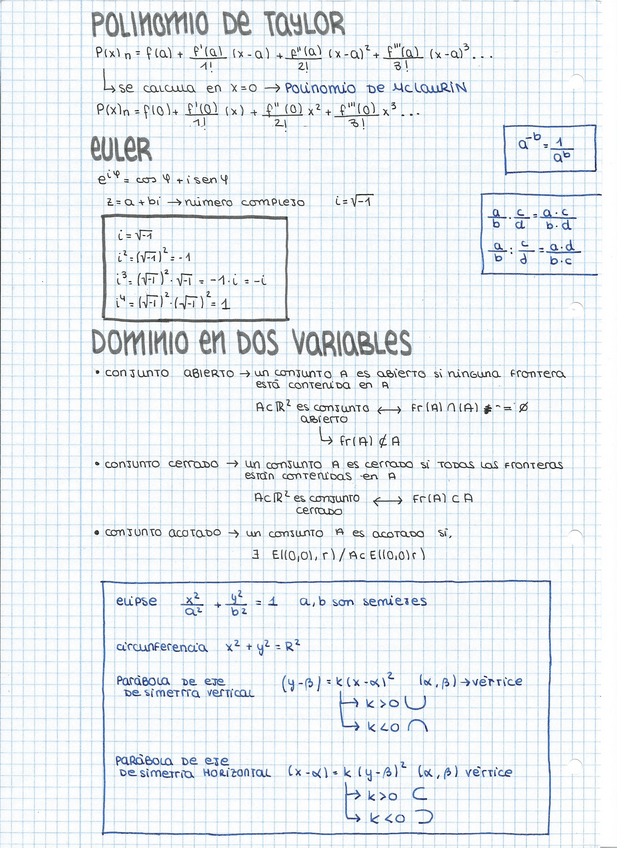 POLINOMIO DE TAYLOR
P(x)n = f(a) + f'(a)/1! (x-a) + f''(a)/2! (x-a)² + f'''(a)/3! (x-a)³ ...
↳ se calcula en x=0 → POLINOMIO DE MCLAURIN
P(x)n = f(0) + f'(0)/1! (x) + f''(0)/2! x² + f'''(0)/3! x³ ...
a^-b = 1/a^b
EULER
e^iφ = cos φ + i sen φ
z = a + bi → número complejo i = √-1
a/b · c/d = a·c/b·d
a/b : c/d = a·d/b·c
i = √-1
i² = (√-1)² = -1
i³ = (√-1)² · √-1 = -1 · i = -i
i⁴ = (√-1)² · (√-1)² = 1
DOMINIO EN DOS VARIABLES
• CONJUNTO ABIERTO → un conjunto A es abierto si ninguna frontera
está contenida en A
A⊂ℝ² es conjunto ⟷ Fr(A) ∩ (A) = Ø
abierto
↳ Fr(A) ⊄ A
• CONJUNTO CERRADO → un conjunto A es cerrado si todas las fronteras
están contenidas en A
A⊂ℝ² es conjunto ⟷ Fr(A) ⊂ A
cerrado
• CONJUNTO ACOTADO → un conjunto A es acotado si,
∃ E((0,0), r) / A⊂E((0,0)r)
elipse x²/a² + y²/b² = 1 a, b son semiejes
circunferencia x² + y² = R²
PARÁBOLA DE EJE
DE SIMETRÍA VERTICAL (y-β) = k(x-α)² (α, β) → vértice
↳ k>0 ∪
↳ k<0 ∩
PARÁBOLA DE EJE
DE SIMETRÍA HORIZONTAL (x-α) = k (y-β)² (α, β) vértice
↳ k>0 ⊂
↳ k<0 ⊃